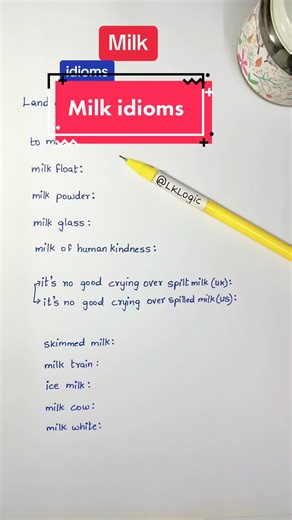 Milk
idioms
Milk idioms
Land
to m
milk float:
@LKLogic
milk powder:
milk glass:
milk of human kindness:
it's no good crying over spilt milk (UK):
it's no good crying over spilled milk (US):
skimmed milk:
milk train:
ice milk:
milk cow:
milk white: